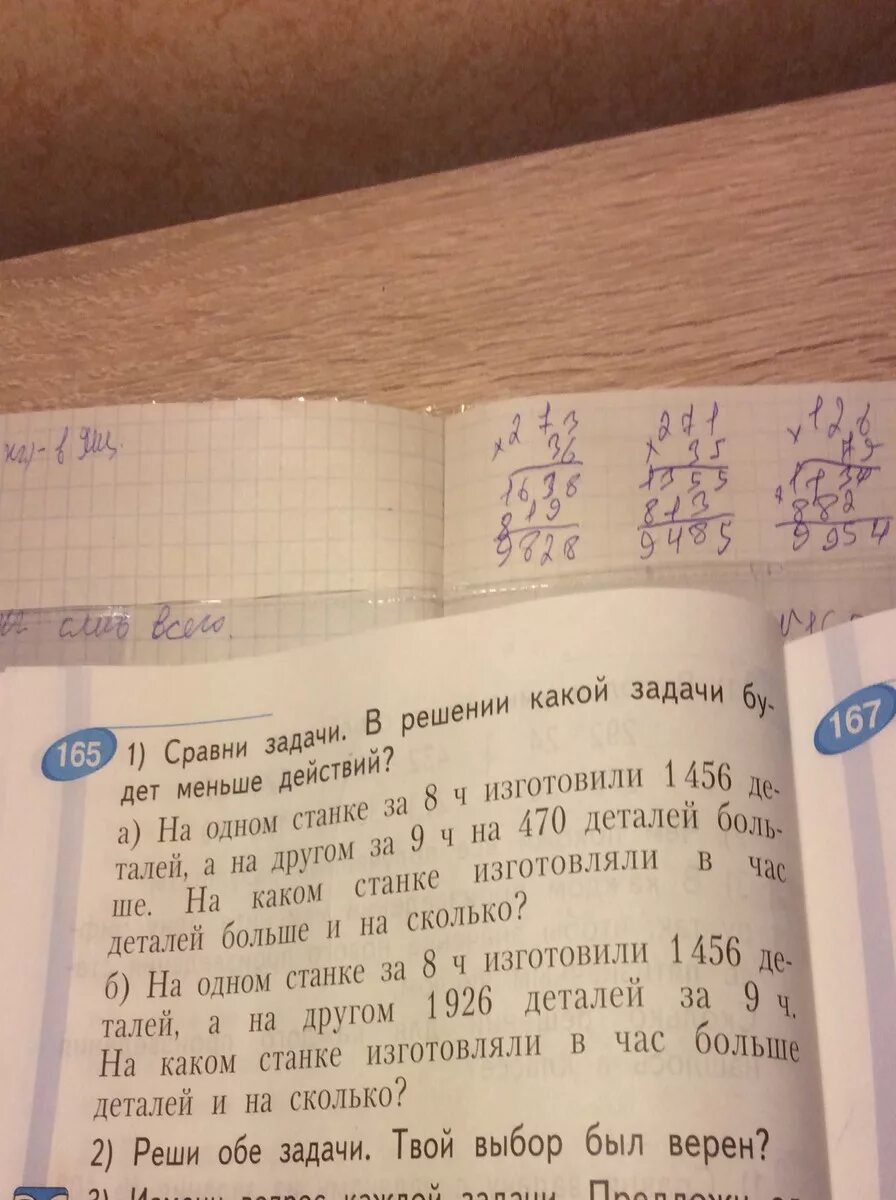 кг)-в ящ.
× 273
36
1638
819
9828
× 271
35
1355
813
9485
× 126
79
+ 1134
882
9954
слив всего.
165 1) Сравни задачи. В решении какой задачи бу-
дет меньше действий?
а) На одном станке за 8 ч изготовили 1 456 де-
талей, а на другом за 9 ч на 470 деталей боль-
ше. На каком станке изготовляли в час
деталей больше и на сколько?
б) На одном станке за 8 ч изготовили 1 456 де-
талей, а на другом 1 926 деталей за 9 ч.
На каком станке изготовляли в час больше
деталей и на сколько?
2) Реши обе задачи. Твой выбор был верен?
3) Измени вопрос каждой задачи. Предложи
167